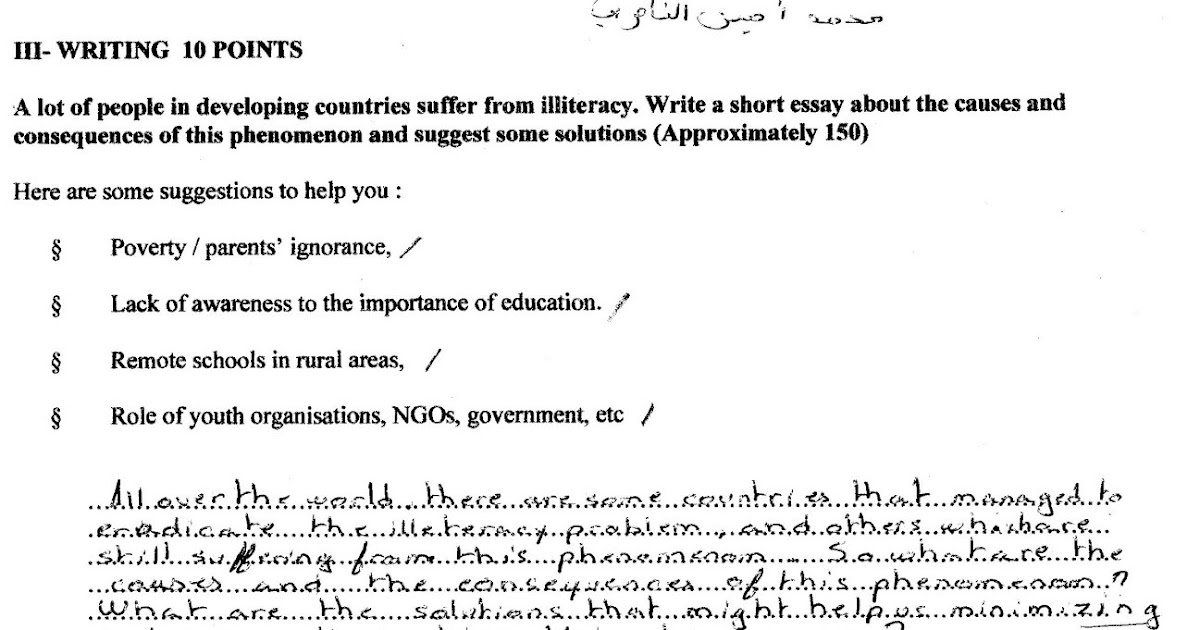 محمد أمين
III- WRITING 10 POINTS
A lot of people in developing countries suffer from illiteracy. Write a short essay about the causes and
consequences of this phenomenon and suggest some solutions (Approximately 150)
Here are some suggestions to help you :
§ Poverty / parents’ ignorance, /
§ Lack of awareness to the importance of education. /
§ Remote schools in rural areas, /
§ Role of youth organisations, NGOs, government, etc /
All over the world, there are some countries that managed to
eradicate the illeteracy problem, and others who are
still suffering from this phenomenom. So what are the
causes and the consequences of this phenomenom ?
What are the solutions that might help us minimizing